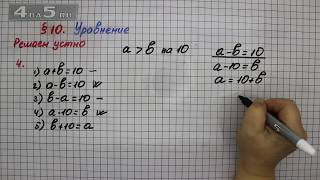 4na5.ru
§10. Уравнение
Решаем устно
4.
1) a+b=10 –
2) a-b=10 ✓
3) b-a=10 –
4) a-10=b ✓
5) b+10=a
a > b на 10
a-b=10
a-10=b
a=10+b